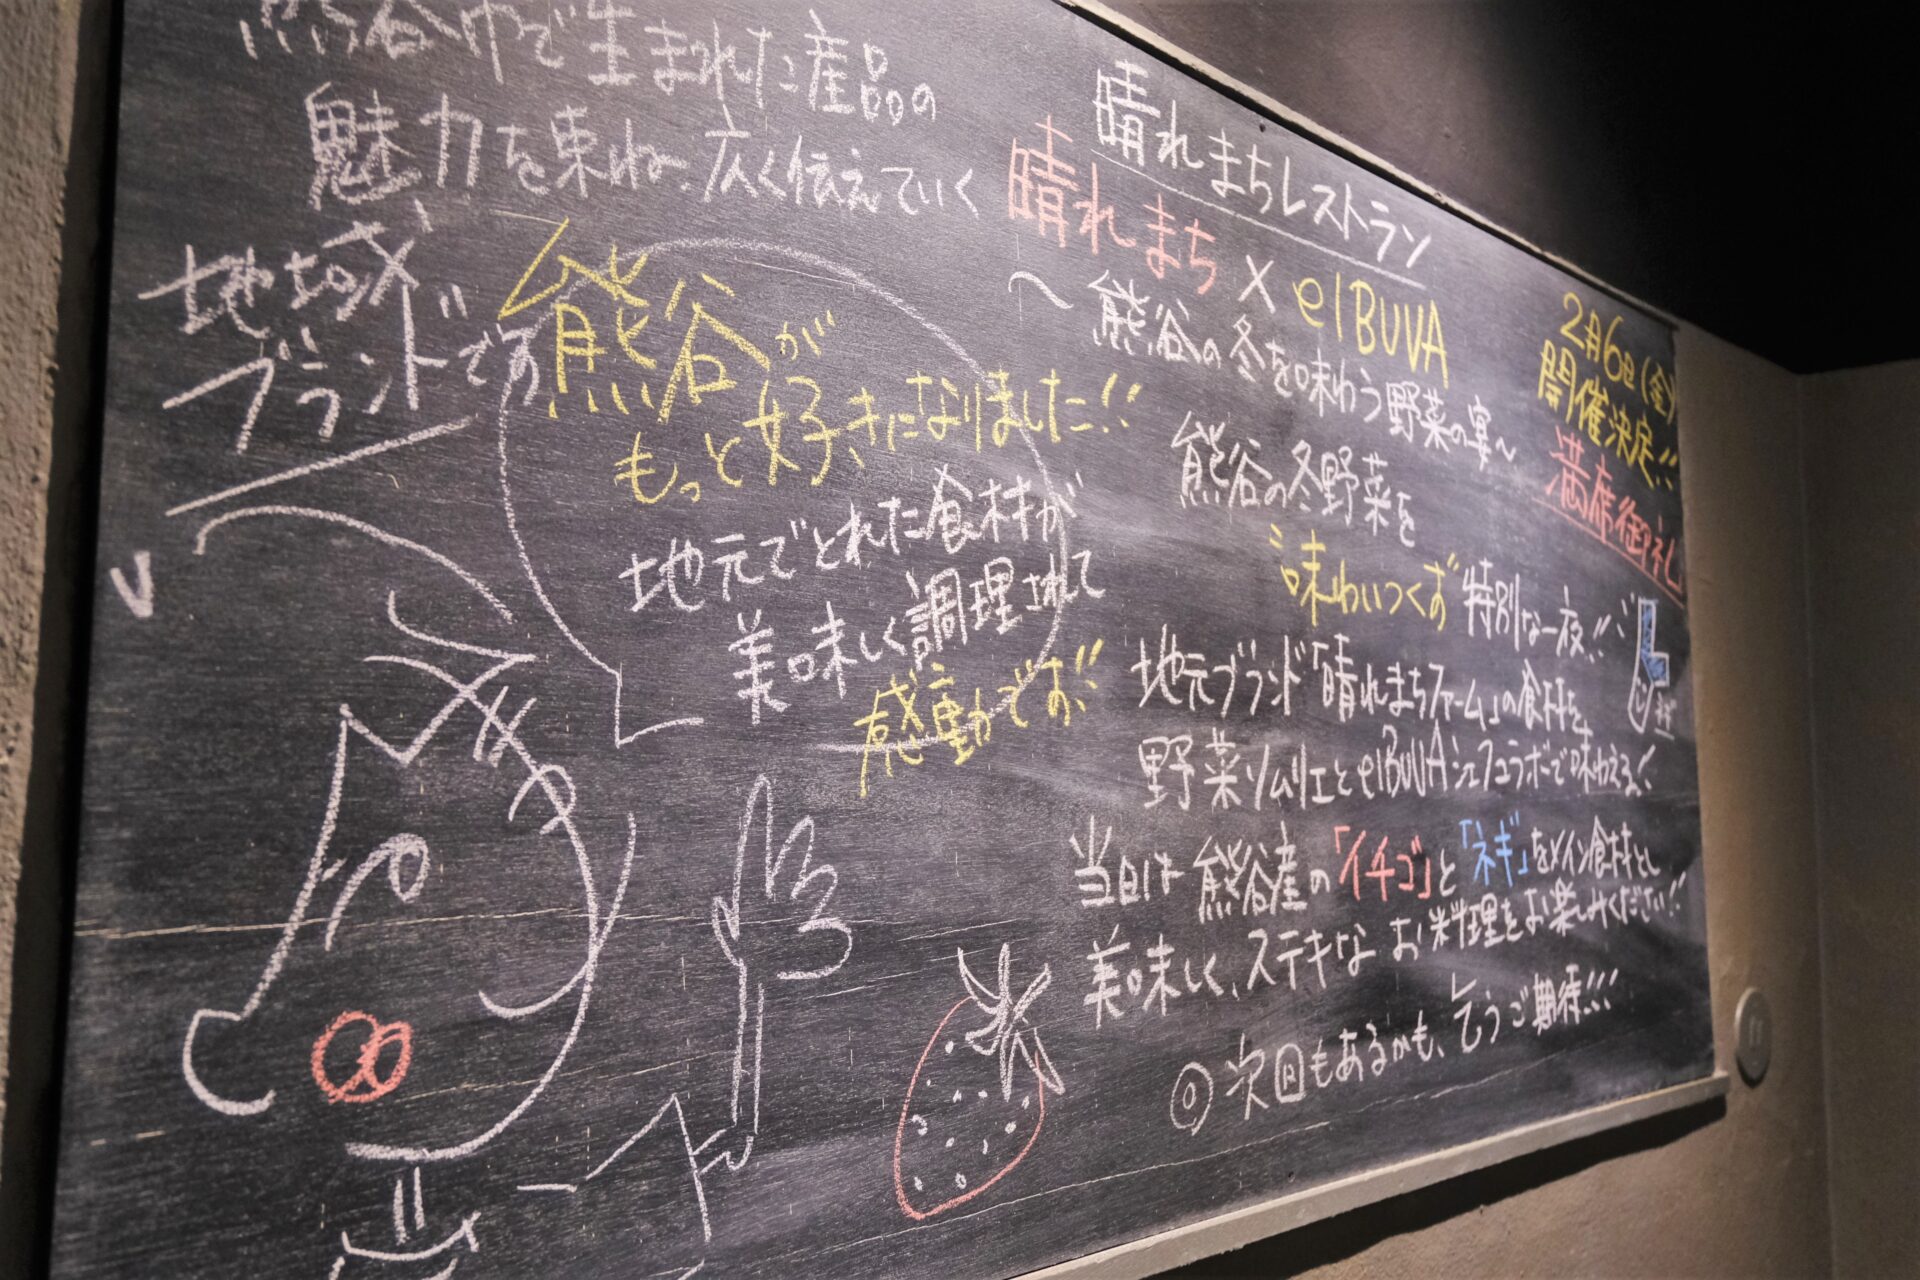 熊谷市で生まれた産品の
魅力を束ね、広く伝えていく
地域
ブランドです
熊谷が
もっと好きになりました!!
地元でとれた食材が
美味しく調理されて
感動です!!
晴れまちレストラン
晴れまち×elBUVA
〜熊谷の冬を味わう野菜の宴〜
2月6日(金)
開催決定!!
満席御礼
熊谷の冬野菜を
味わいつくす特別な一夜!!
地元ブランド「晴れまちファーム」の食材を、
野菜ソムリエとelBUVAシェフコラボで味わえる!
当日は熊谷産の「イチゴ」と「ネギ」をメイン食材とし
美味しく、ステキなお料理をお楽しみください!!
◎次回もあるかも、乞うご期待!!!